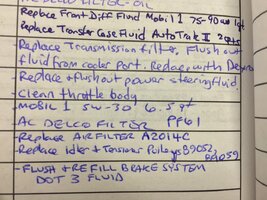 Replace Front Diff Fluid Mobil 1 75-90
Replace Transfer Case Fluid AutoTrak II
Replace Transmission filter, Flush out
fluid from cooler Port. Redo, with
Replace + flush out power steering fluid
- clean throttle body
- MOBIL 1 5W-30 6.5 qt
- AC DELCO FILTER PF61
- Replace AIR FILTER A2014C
- Replace idler + Tensioner Pulleys 89052,
89059
- FLUSH + REFILL BRAKE SYSTEM
DOT 3 FLUID